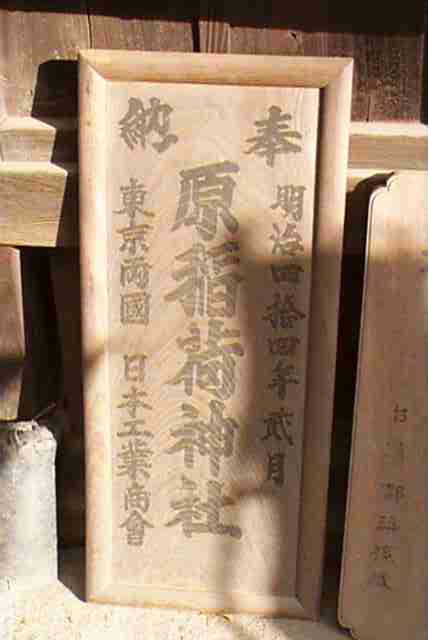 奉
明治四拾四年弐月
原稲荷神社
納
東京両國 日本工業商會